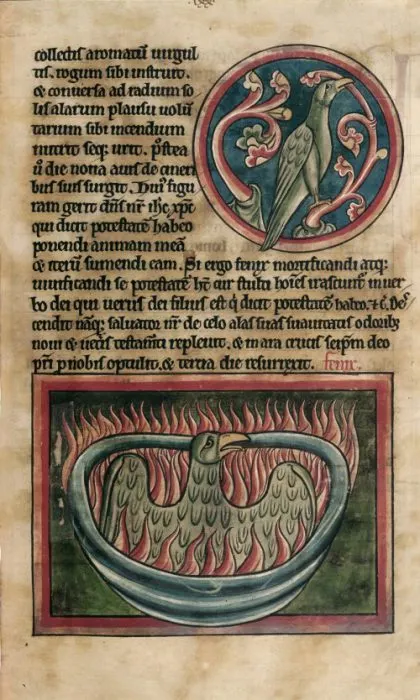 collectis aromatū uirgul
tis. rogum sibi instruit.
& conuersa ad radium so
lis alarum plausu uolū
tarium sibi incendium
nutrit seq; urit. postea
ū die nona auis de cineri
bus suis surgit. Huiꝰ figu
ram gerit dn̄s nr̄ ihc xpc
qui dicit potestatē habeo
ponendi animam meā
& iterū sumendi eam. Si ergo fenix mortificandi atq;
uiuificandi se potestatē hт̄ cur stulti hoīes irascunт̄ in uer
bo dei qui uerus dei filius est q̄ dicit potestatē habeo. & c̄. Des
cendit nāq; saluator nr̄ de celo alas suas suauitatis odoribꝫ
noui & ueteris testam̄ti repleuit. & in ara crucis seip̄m deo
pr̄i ꝓ nobis optulit. & tertia die resurrexit. fenix.